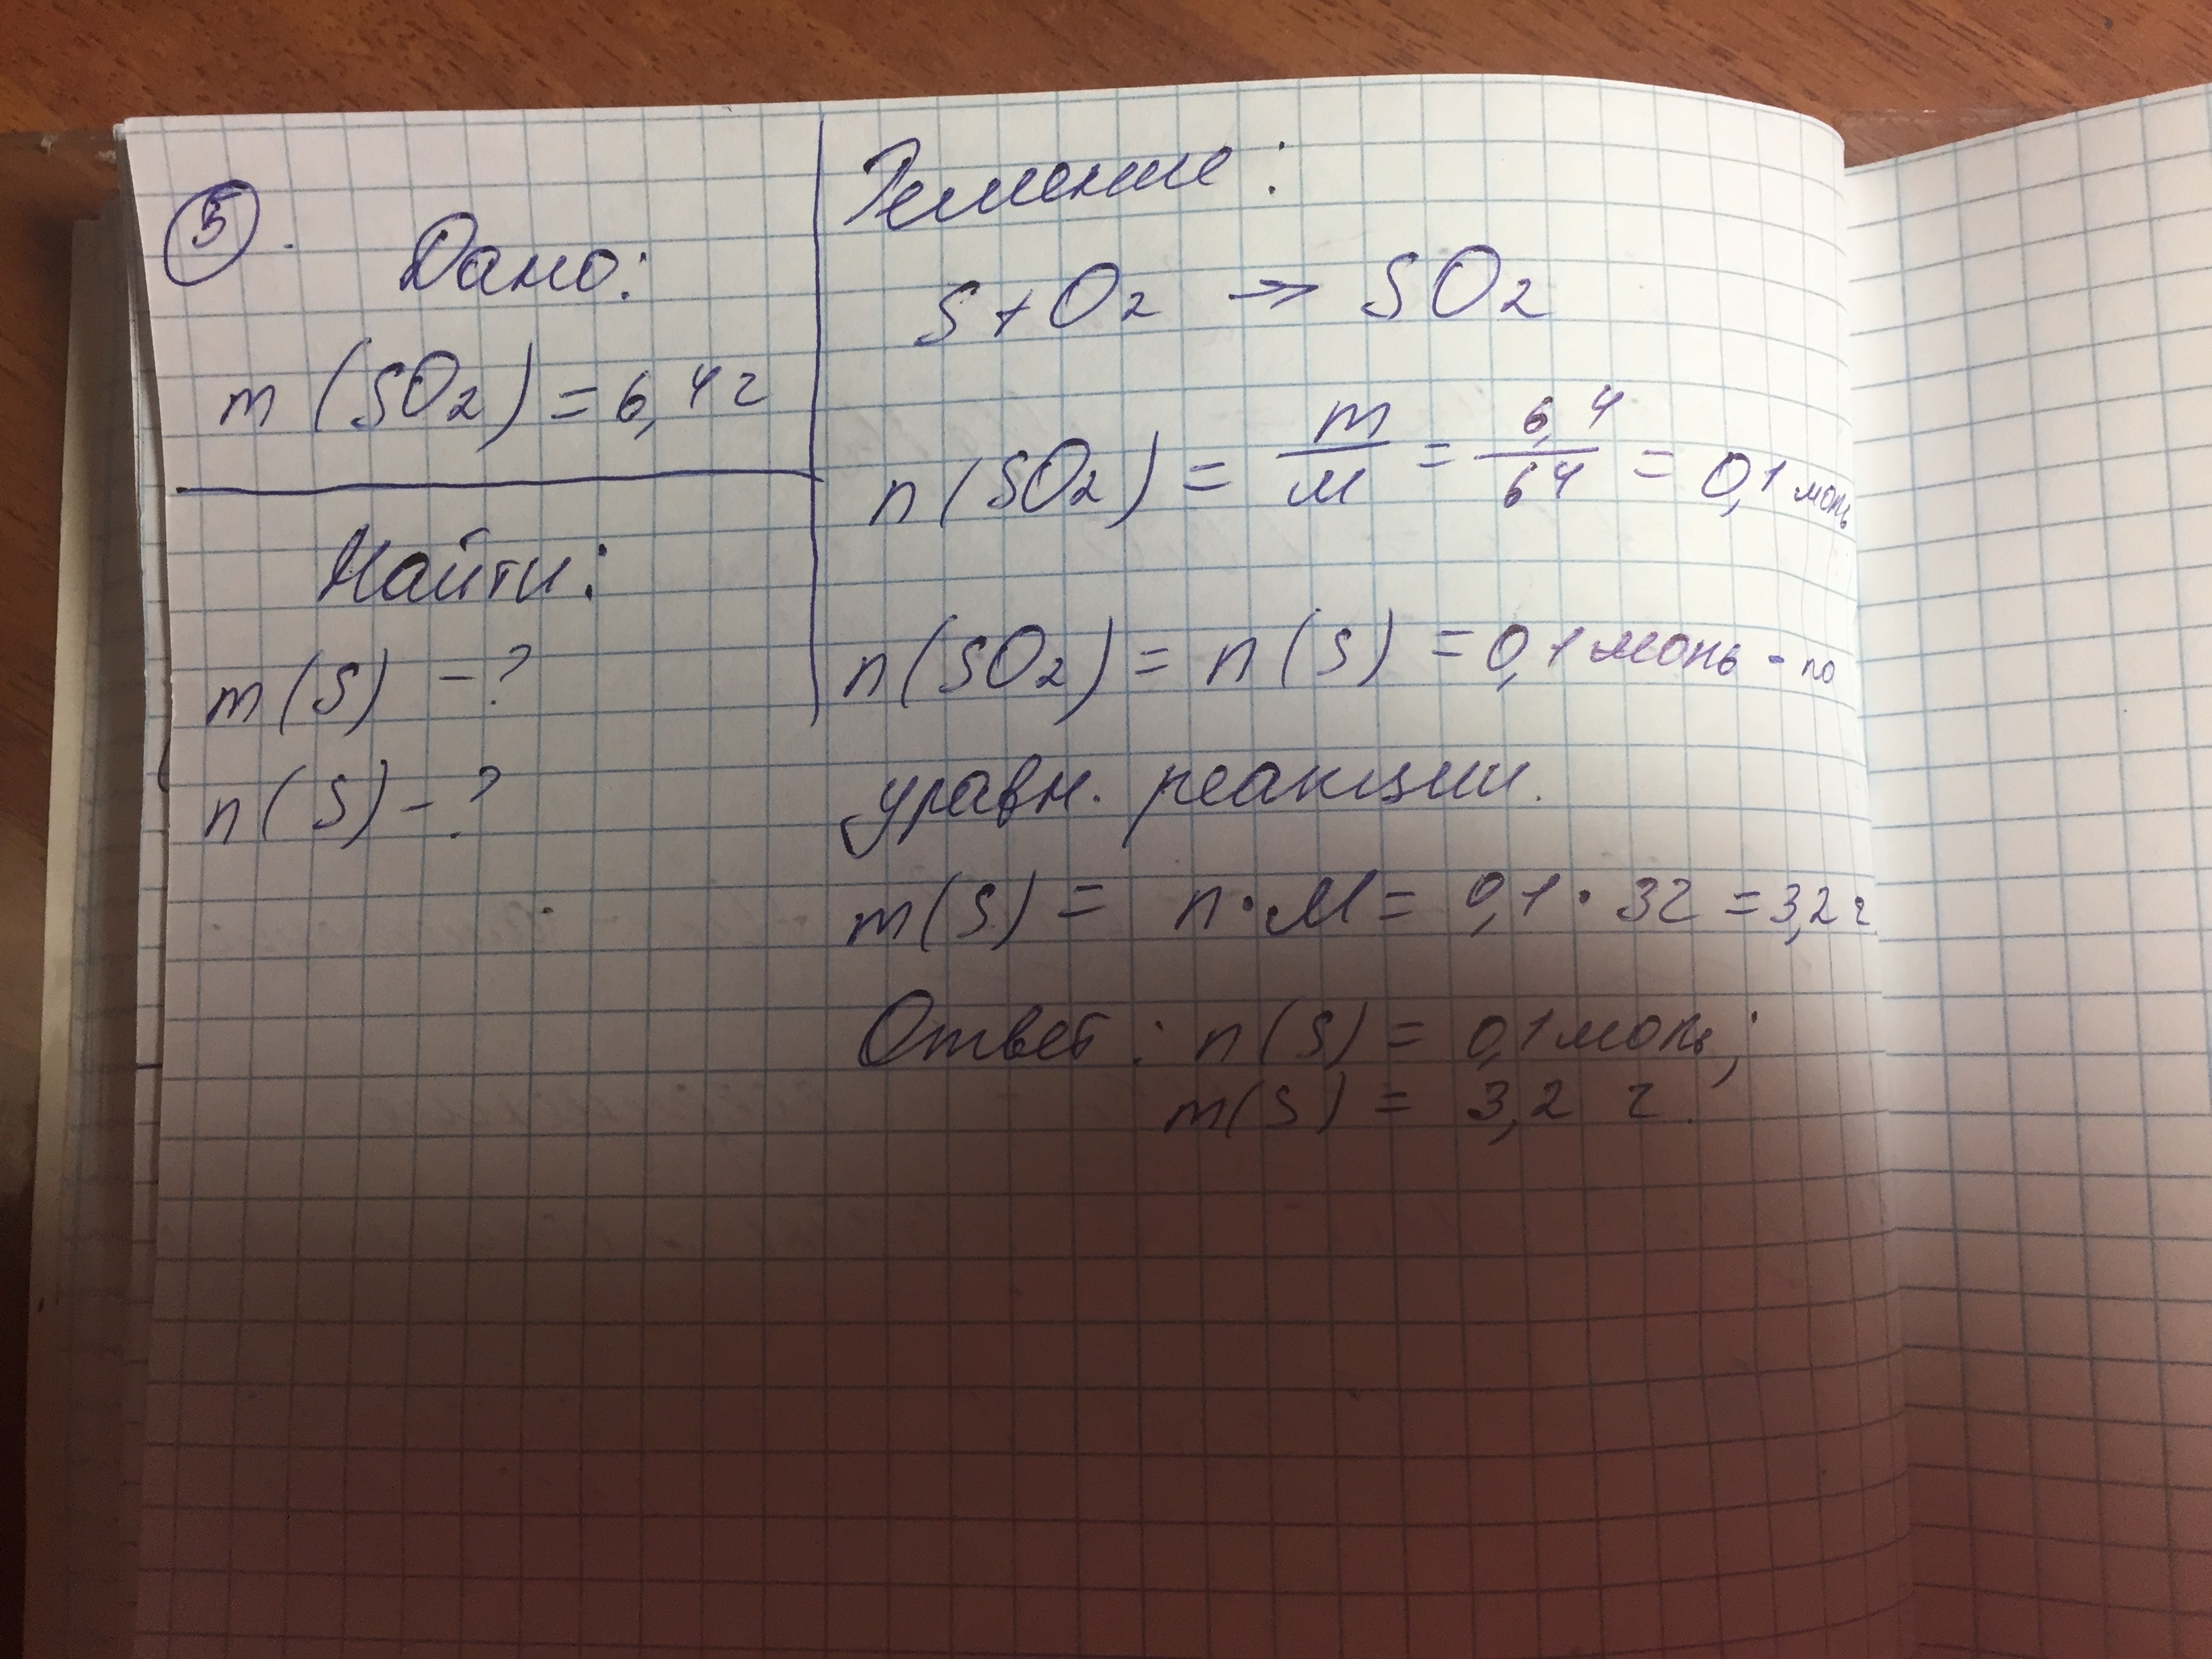 5.
Дано:
m(SO2) = 6,4 г
Найти:
m(S) - ?
n(S) - ?
Решение:
S + O2 → SO2
n(SO2) = m/M = 6,4/64 = 0,1 моль
n(SO2) = n(S) = 0,1 моль - по
уравн. реакции.
m(S) = n · M = 0,1 · 32 = 3,2 г
Ответ: n(S) = 0,1 моль;
m(S) = 3,2 г.